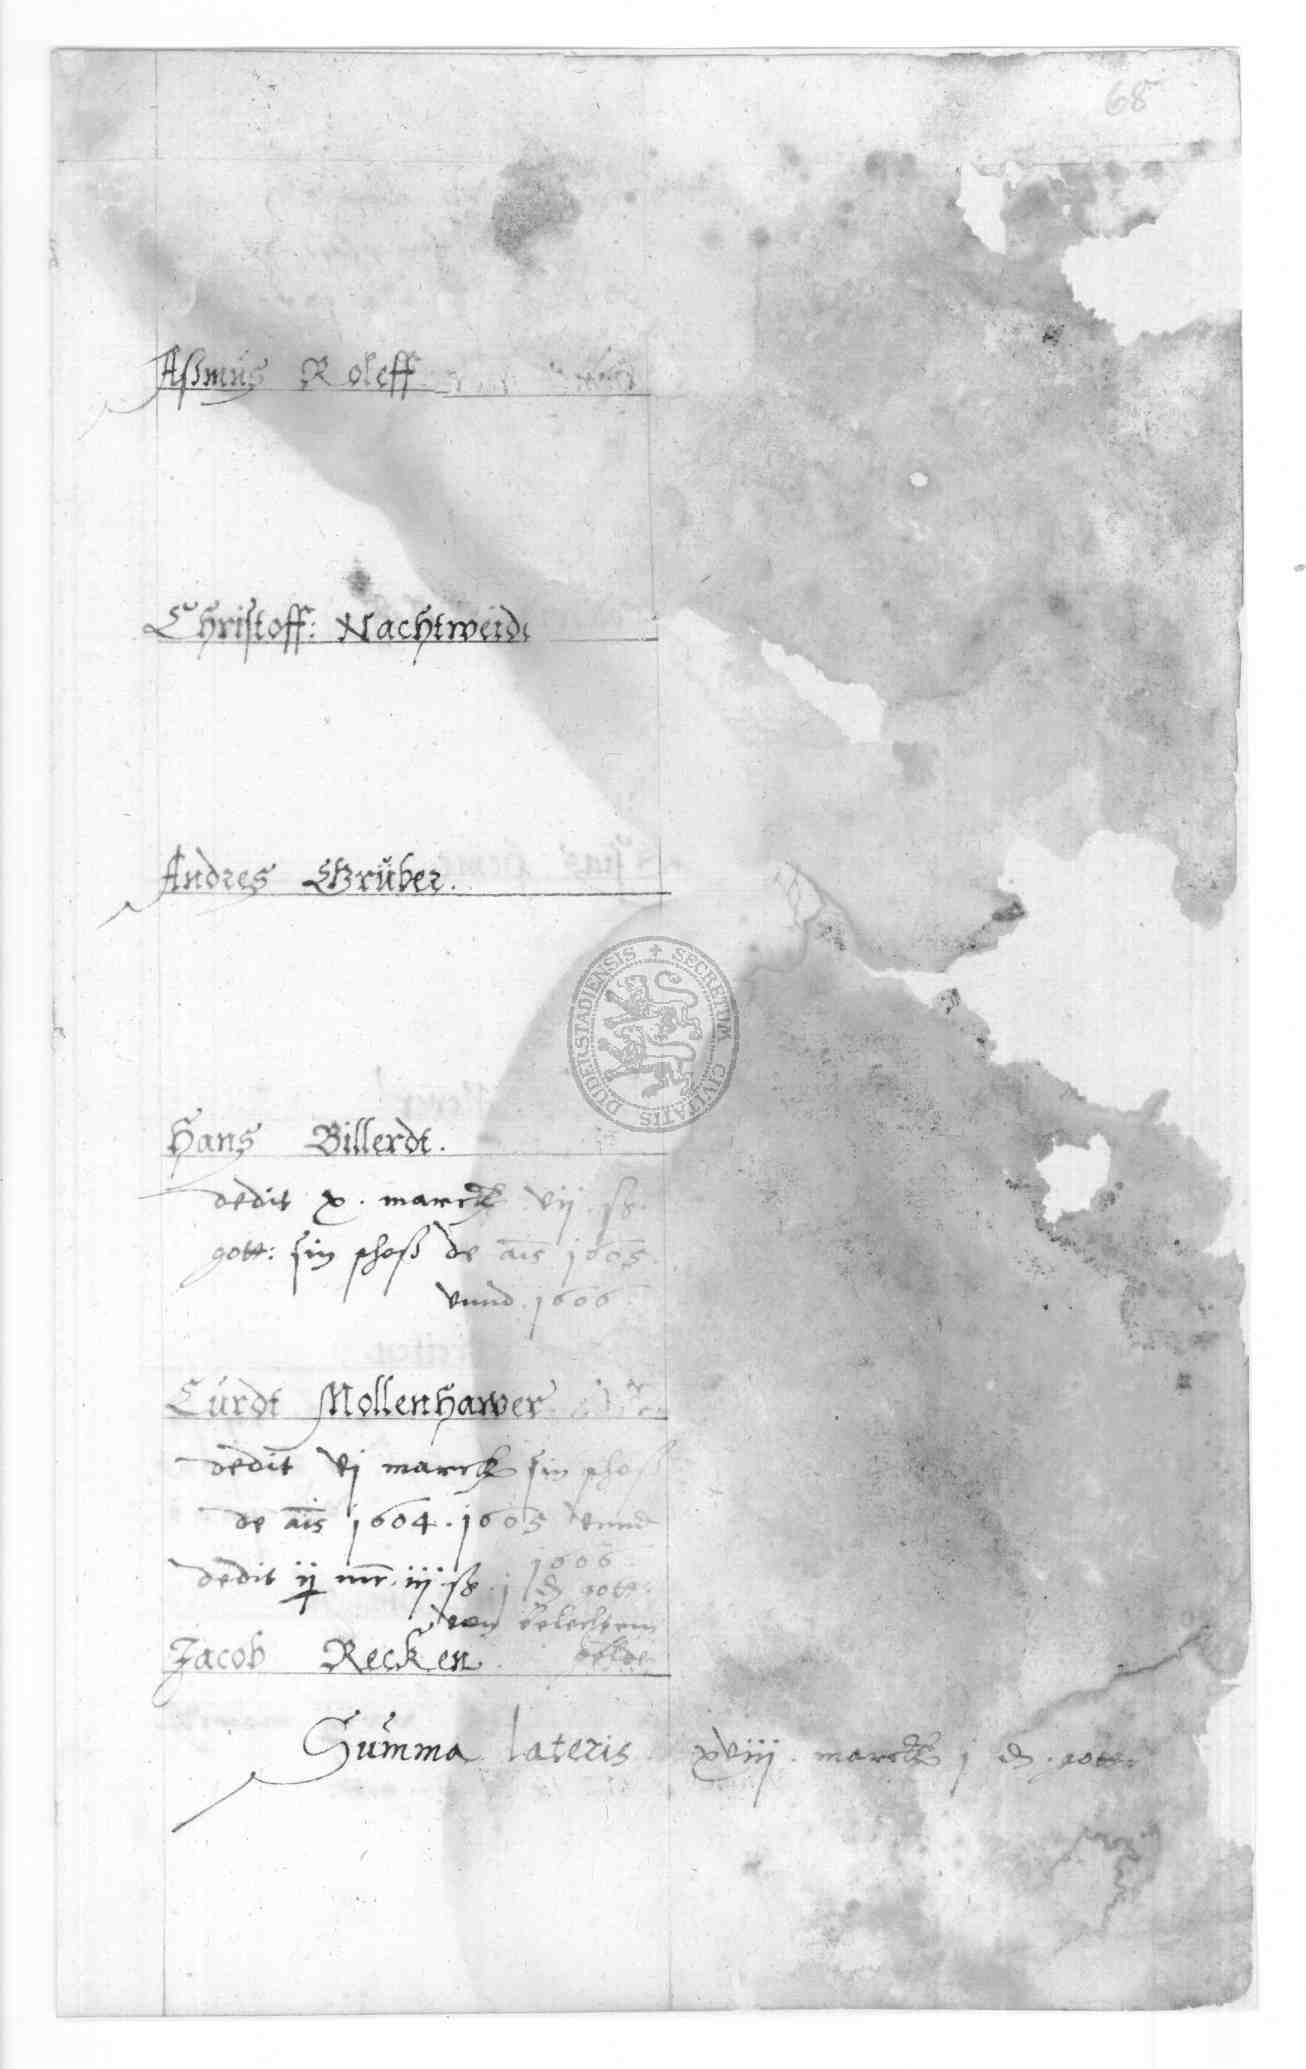 68
Aßmus Roleff
Christoff: Nachtweide
Andres Grüber.
DUDERSTADIENSIS SECRETUM CIVITATIS
Hans Billerdt.
dedit x. marck vii. ß.
gott: sin schoß de ais 1605.
vnnd. 1606
Curdt Mollenhawer
dedit vj marck sin schoß
de ais 1604. 1605 vnnd
1606
dedit ij mr. iij ß. j d gott.
von
Jacob Recken.
Summa lateris xviii. marck j d. gott: